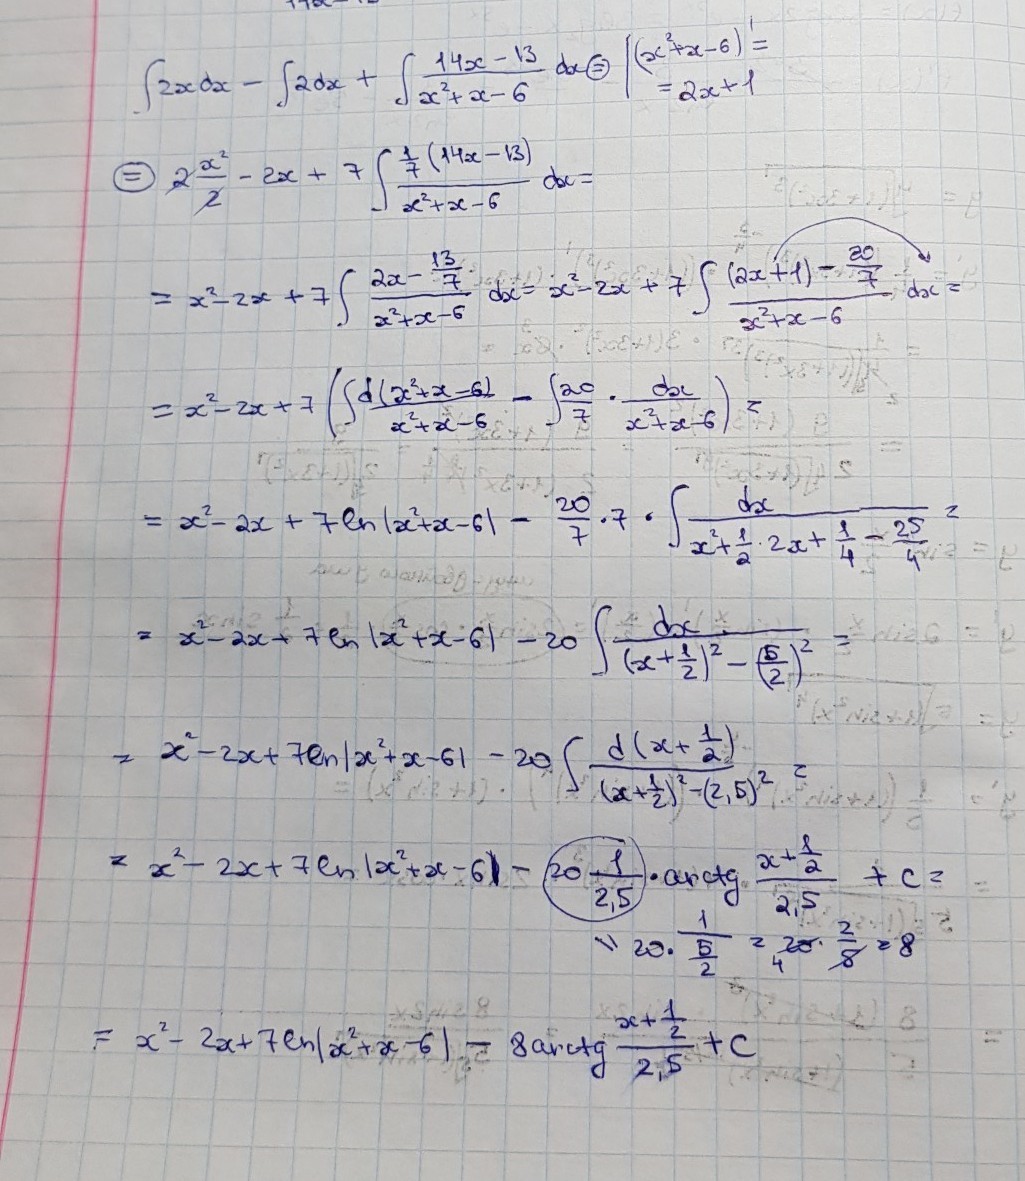 ∫2xdx − ∫2dx + ∫ (14x − 13)/(x² + x − 6) dx ⊜ | (x² + x − 6)' =
= 2x + 1
⊜ 2 x²/2 − 2x + 7 ∫ (1/7 (14x − 13))/(x² + x − 6) dx =
= x² − 2x + 7 ∫ (2x − 13/7)/(x² + x − 6) dx = x² − 2x + 7 ∫ ((2x + 1) − 20/7)/(x² + x − 6) dx =
= x² − 2x + 7 (∫ d(x² + x − 6)/(x² + x − 6) − ∫ 20/7 · dx/(x² + x − 6)) =
= x² − 2x + 7 ln|x² + x − 6| − 20/7 · 7 · ∫ dx/(x² + 1/2 · 2x + 1/4 − 25/4) =
= x² − 2x + 7 ln|x² + x − 6| − 20 ∫ dx/((x + 1/2)² − (5/2)²) =
= x² − 2x + 7 ln|x² + x − 6| − 20 ∫ d(x + 1/2)/((x + 1/2)² − (2,5)²) =
= x² − 2x + 7 ln|x² + x − 6| − 20 · 1/2,5 · arctg (x + 1/2)/2,5 + C =
20 · 1/(5/2) = 20 · 2/5 = 8
4
= x² − 2x + 7 ln|x² + x − 6| − 8 arctg (x + 1/2)/2,5 + C